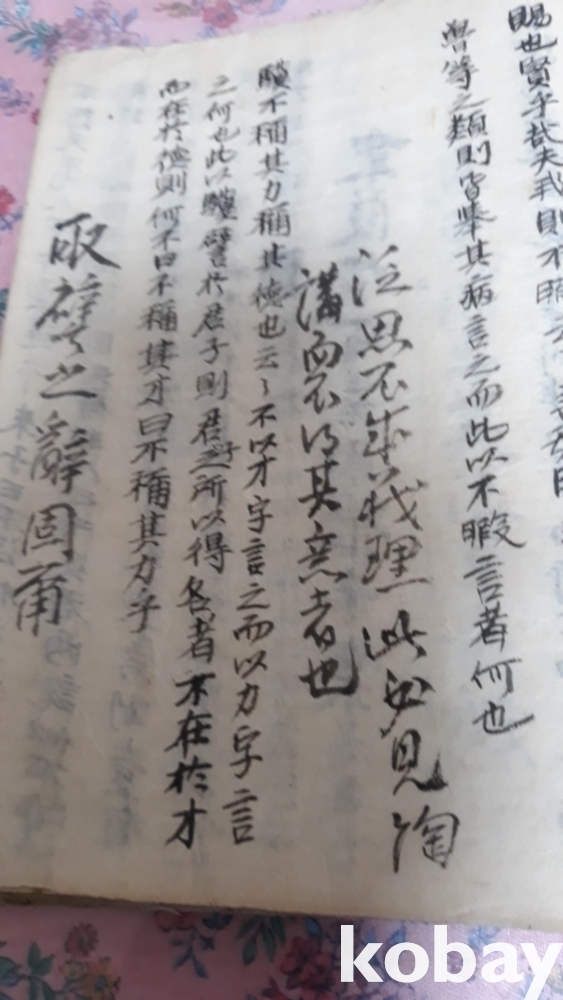 賜也賢乎哉夫我則不暇
等之類則皆擧其病言之而此以不暇言者何也
泛思不成義理此必見
講而不得其意者也
驥不稱其力稱其德也云〻不以才字言之而以力字言
之何也此以驥譬於君子則君子之所以得名者不在於才
而在於德則何不曰不稱其才曰不稱其力乎
取譬之辭固爾
kobay